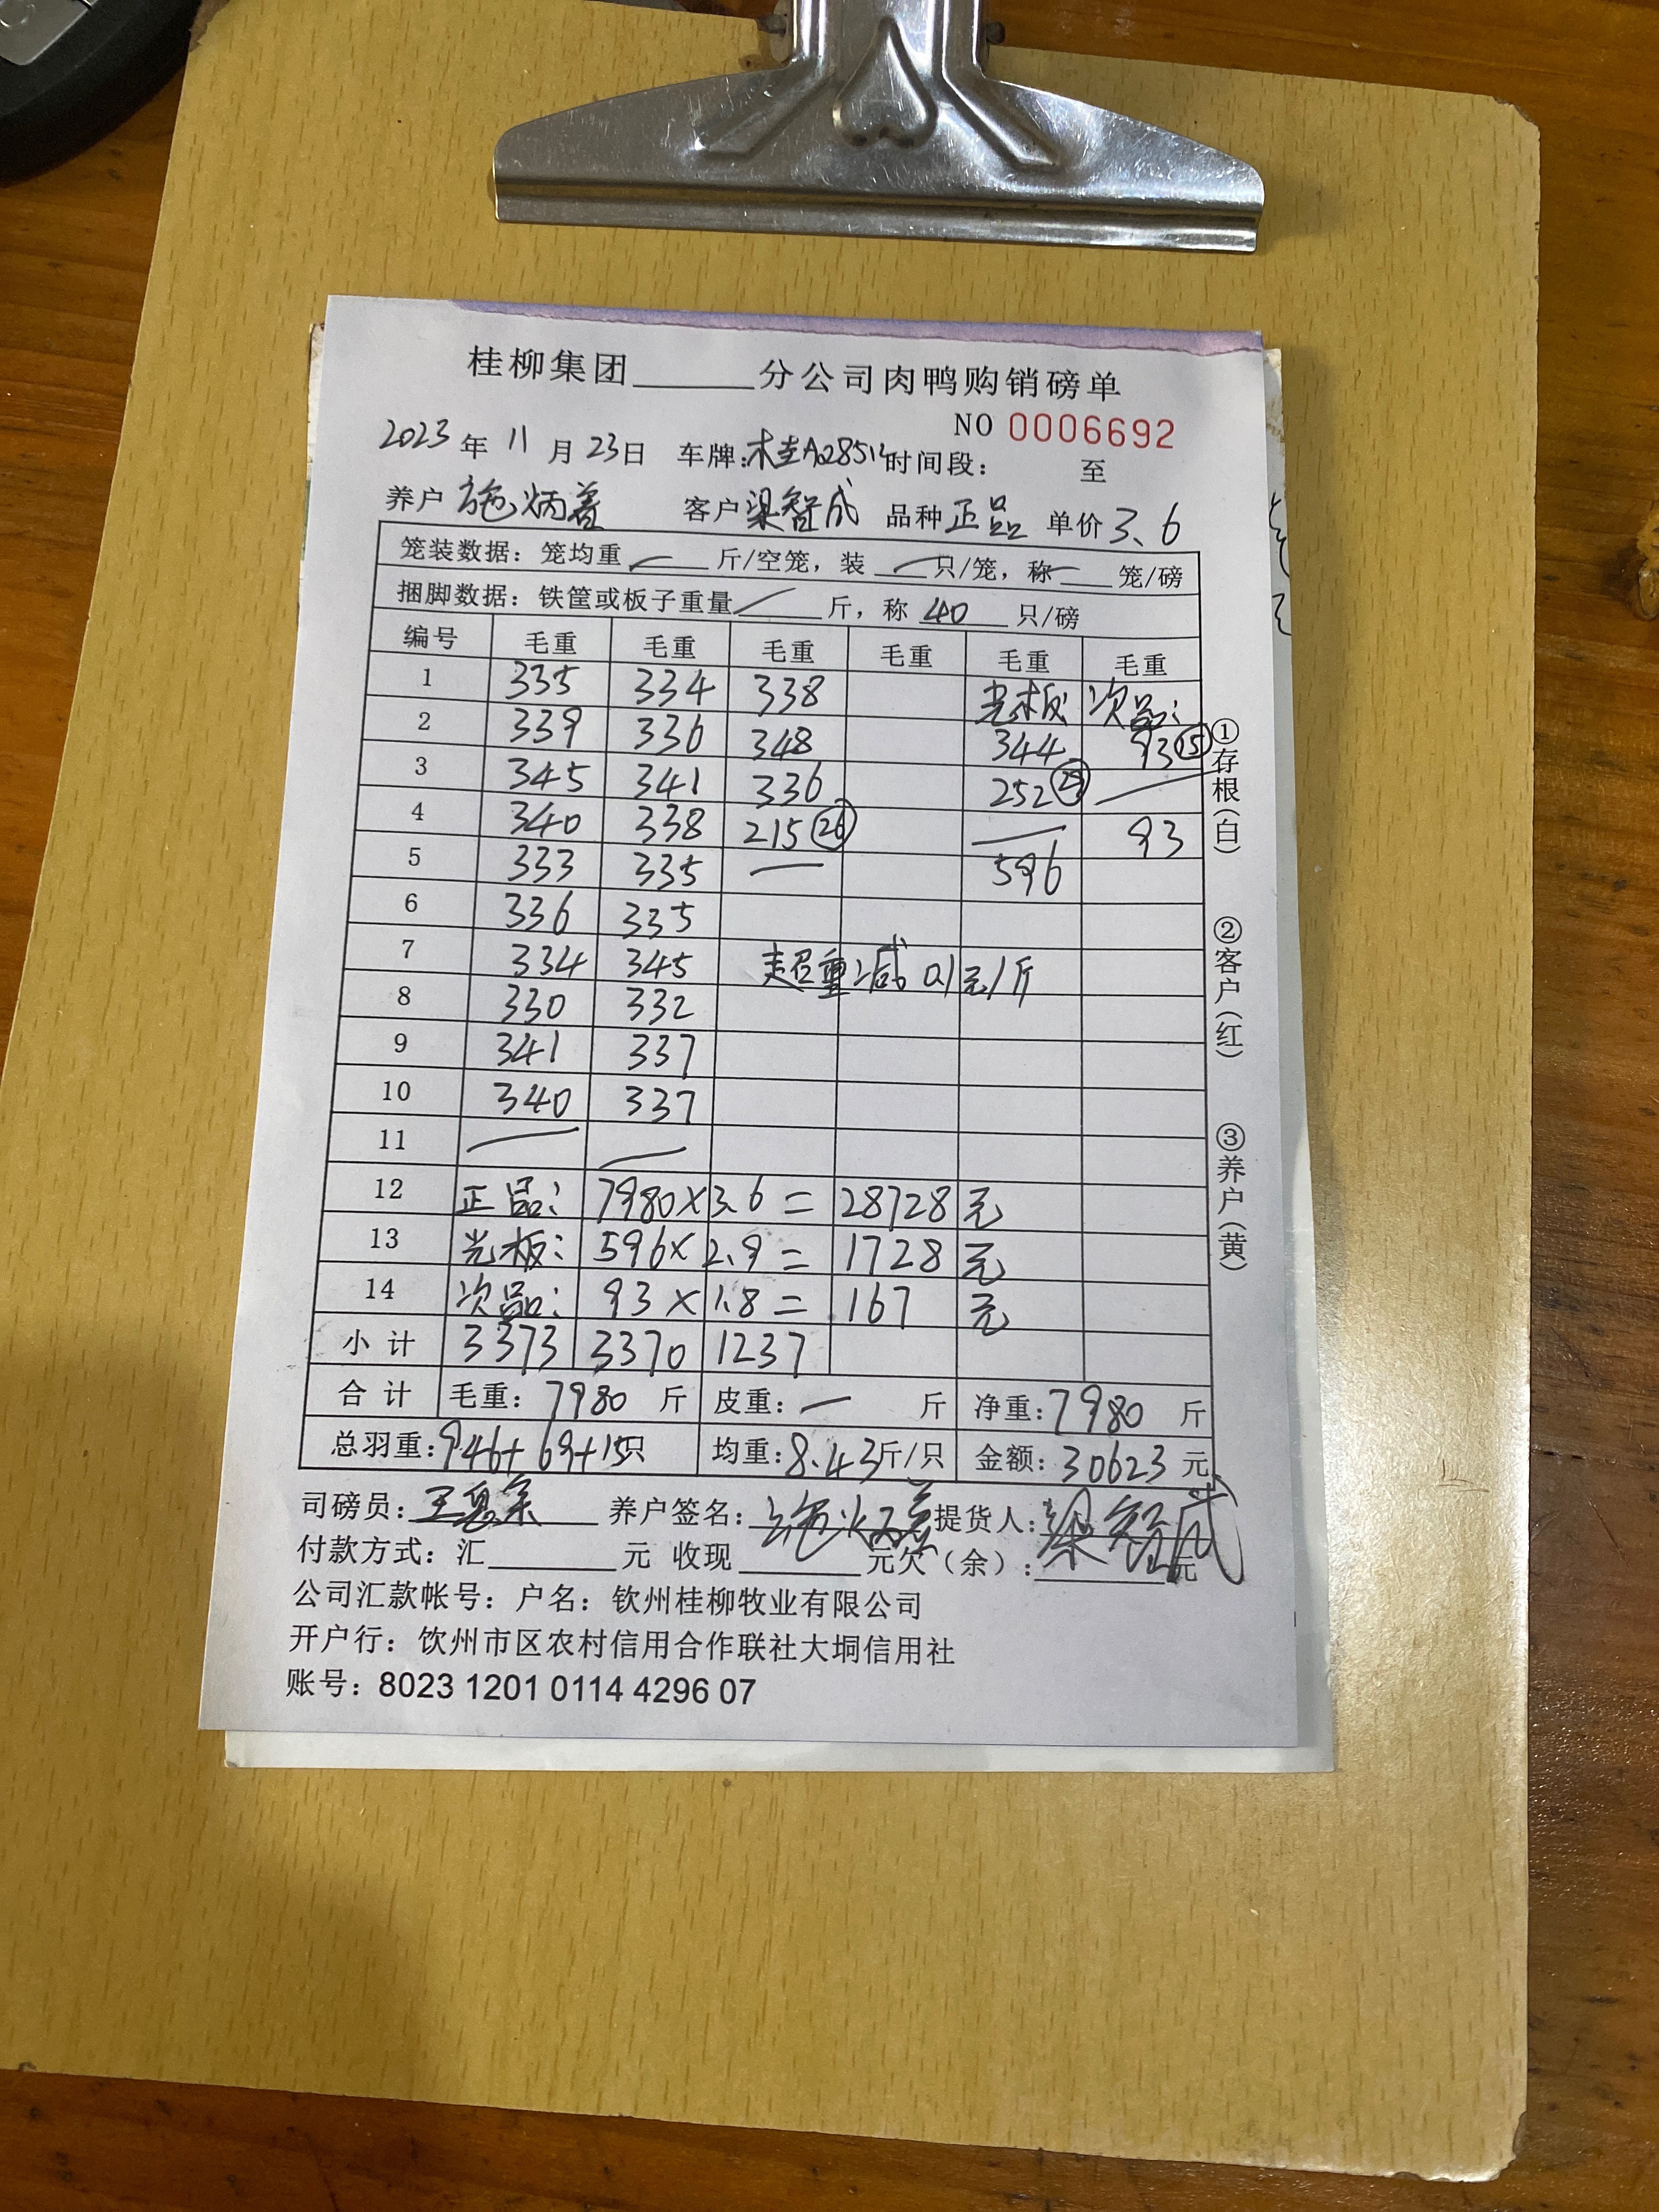 桂柳集团______分公司肉鸭购销磅单
NO 0006692
2023 年 11 月 23 日 车牌:桂A02851 时间段: 至
养户 施炳善 客户 梁智成 品种 正品 单价 3.6
笼装数据: 笼均重 — 斤/空笼, 装 — 只/笼, 称 — 笼/磅
捆脚数据: 铁筐或板子重量 / 斤, 称 40 只/磅
编号 毛重 毛重 毛重 毛重 毛重 毛重
1 335 334 338 光板 次品:
2 339 336 348 344 93⑮
3 345 341 336 252㉙ —
4 340 338 215㉖ — 93
5 333 335 — 596
6 336 335
7 334 345 超重减 0.1元/斤
8 330 332
9 341 337
10 340 337
11 — —
12 正品: 7980×3.6 = 28728 元
13 光板: 596×2.9 = 1728 元
14 次品: 93×1.8 = 167 元
小计 3373 3370 1237
合计 毛重: 7980 斤 皮重: — 斤 净重: 7980 斤
总羽重: 946+69+15只 均重: 8.43斤/只 金额: 30623 元
司磅员: 养户签名: 施炳善 提货人: 梁智成
付款方式: 汇______元 收现______元欠(余):______元
公司汇款帐号: 户名: 钦州桂柳牧业有限公司
开户行: 钦州市区农村信用合作联社大垌信用社
账号: 8023 1201 0114 4296 07
①存根(白)
②客户(红)
③养户(黄)